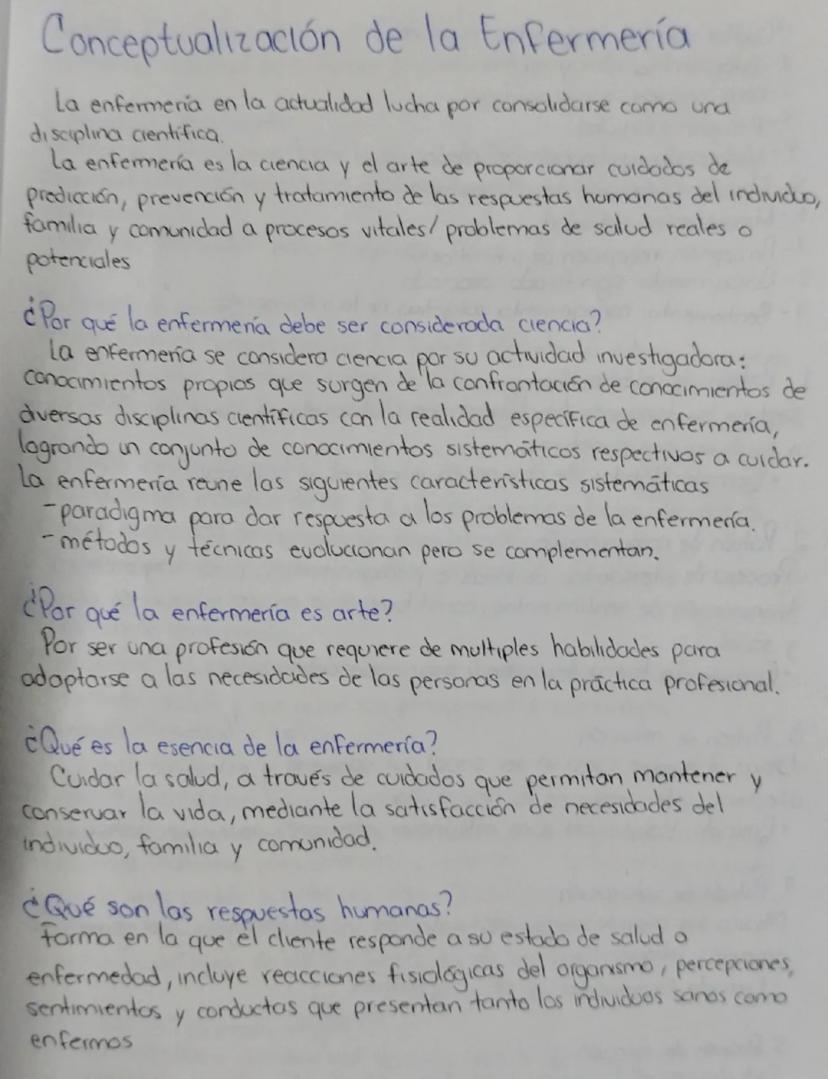 Conceptualización de la Enfermería
La enfermería en la actualidad lucha por consolidarse como una
disciplina científica.
La enfermería es la ciencia y el arte de proporcionar cuidados de
predicción, prevención y tratamiento de las respuestas humanas del individuo,
familia y comunidad a procesos vitales/ problemas de salud reales o
potenciales
¿Por qué la enfermería debe ser considerada ciencia?
La enfermería se considera ciencia por su actividad investigadora:
conocimientos propios que surgen de la confrontación de conocimientos de
diversas disciplinas científicas con la realidad específica de enfermería,
logrando un conjunto de conocimientos sistemáticos respectivos a cuidar.
La enfermería reune las siguientes características sistemáticas
-paradigma para dar respuesta a los problemas de la enfermería.
-métodos y técnicas evolucionan pero se complementan.
¿Por qué la enfermería es arte?
Por ser una profesión que requiere de multiples habilidades para
adaptarse a las necesidades de las personas en la práctica profesional.
¿Qué es la esencia de la enfermería?
Cuidar la salud, a través de cuidados que permitan mantener y
conservar la vida, mediante la satisfacción de necesidades del
individuo, familia y comunidad.
¿Qué son las respuestas humanas?
Forma en la que el cliente responde a su estado de salud o
enfermedad, incluye reacciones fisiológicas del organismo, percepciones,
sentimientos y conductas que presentan tanto los individuos sanos como
enfermos